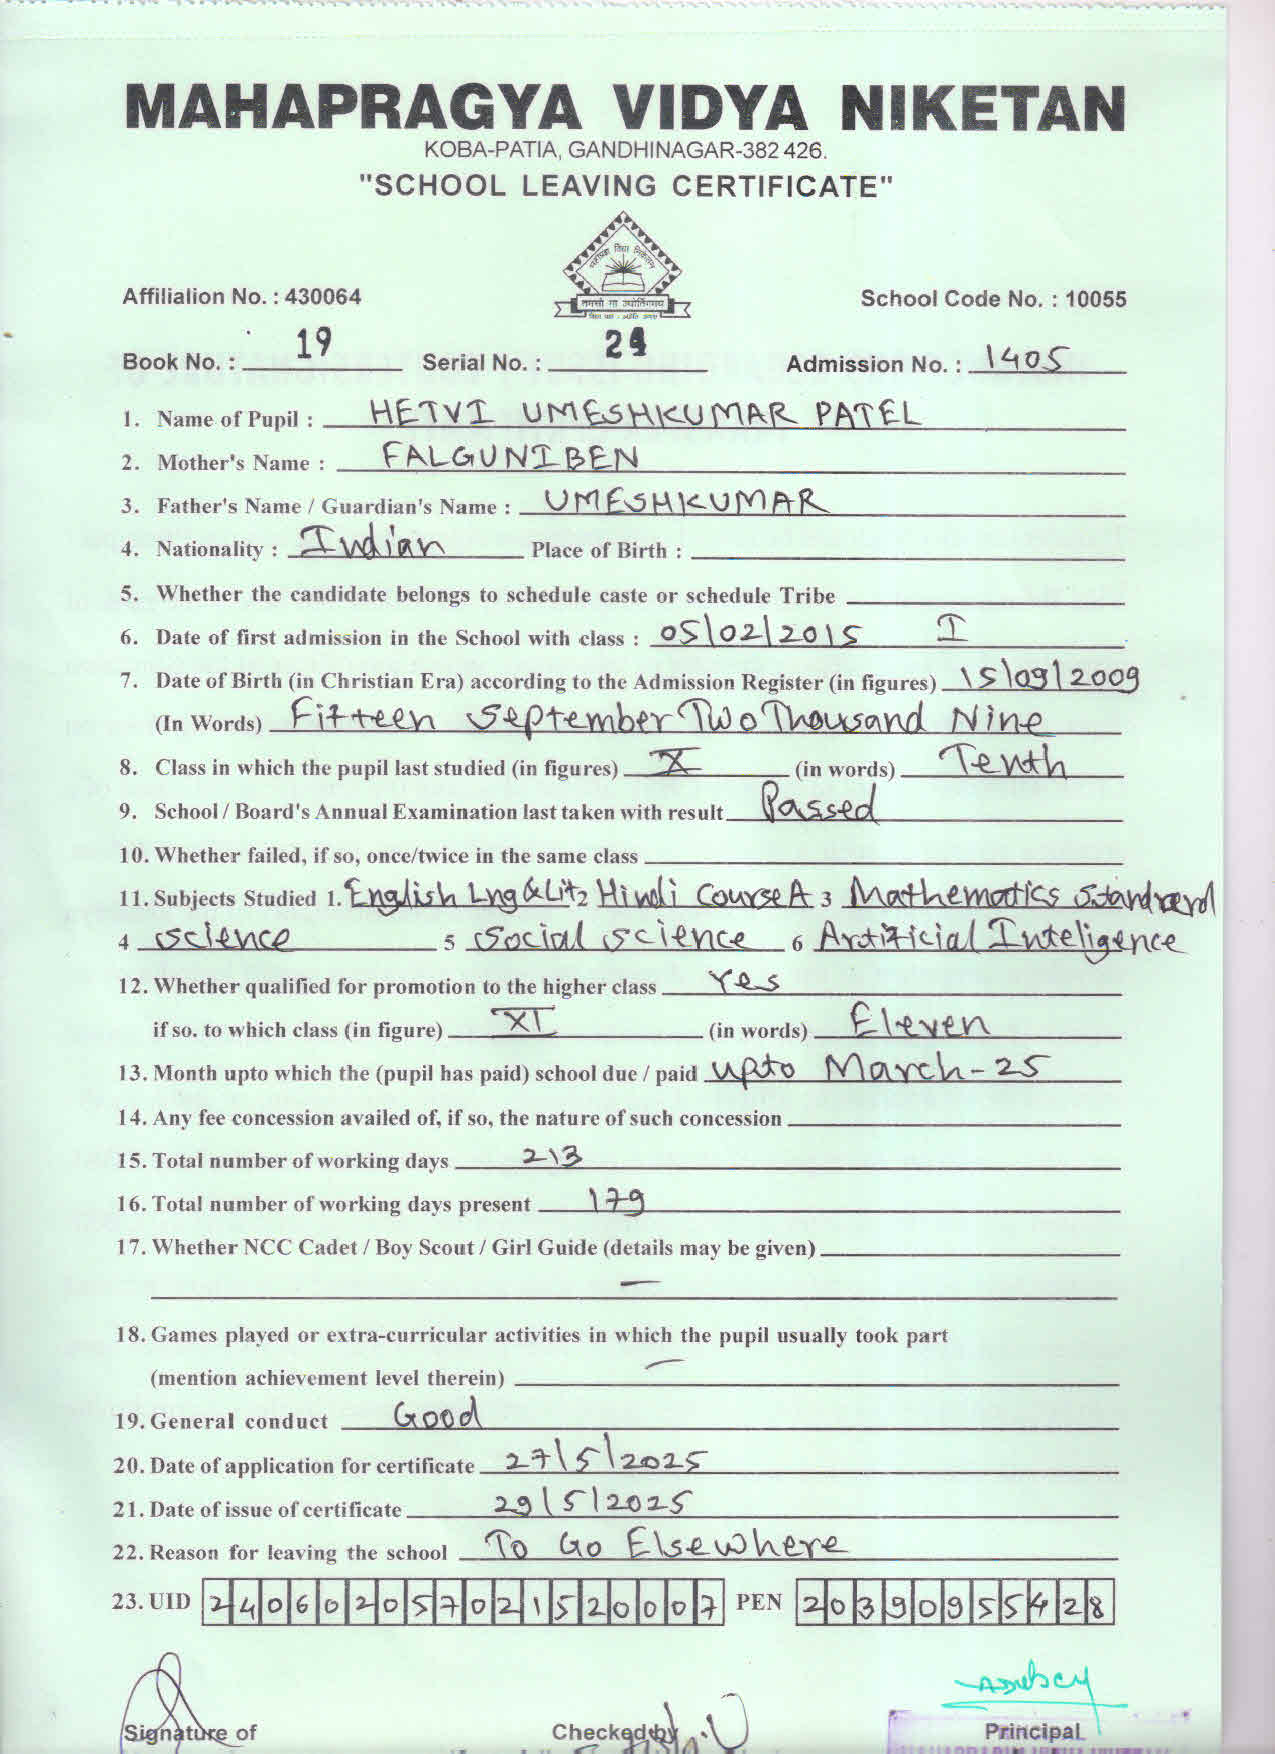 MAHAPRAGYA VIDYA NIKETAN
KOBA-PATIA, GANDHINAGAR-382 426.
"SCHOOL LEAVING CERTIFICATE"
महाप्रज्ञ विद्या निकेतन
तमसो मा ज्योतिर्गमय
Affilialion No. : 430064 School Code No. : 10055
Book No. : 19 Serial No. : Admission No. : 1405
1. Name of Pupil : HETVI UMESHKUMAR PATEL
2. Mother's Name : FALGUNIBEN
3. Father's Name / Guardian's Name : UMESHKUMAR
4. Nationality : Indian Place of Birth :
5. Whether the candidate belongs to schedule caste or schedule Tribe
6. Date of first admission in the School with class : 05/02/2015 I
7. Date of Birth (in Christian Era) according to the Admission Register (in figures) 15/09/2009
(In Words) Fifteen September Two Thousand Nine
8. Class in which the pupil last studied (in figures) X (in words) Tenth
9. School / Board's Annual Examination last taken with result Passed
10. Whether failed, if so, once/twice in the same class
11. Subjects Studied 1. English Lng & Lit 2 Hindi Course A 3 Mathematics Standrerd
4 Science 5 Social Science 6 Artificial Inteligence
12. Whether qualified for promotion to the higher class Yes
if so. to which class (in figure) XI (in words) Eleven
13. Month upto which the (pupil has paid) school due / paid upto March-25
14. Any fee concession availed of, if so, the nature of such concession
15. Total number of working days 213
16. Total number of working days present 179
17. Whether NCC Cadet / Boy Scout / Girl Guide (details may be given)
—
18. Games played or extra-curricular activities in which the pupil usually took part
(mention achievement level therein) —
19. General conduct Good
20. Date of application for certificate 27/5/2025
21. Date of issue of certificate 29/5/2025
22. Reason for leaving the school To Go Elsewhere
23. UID 240602057021520007 PEN 20390955428
Signature of Checked by Principal